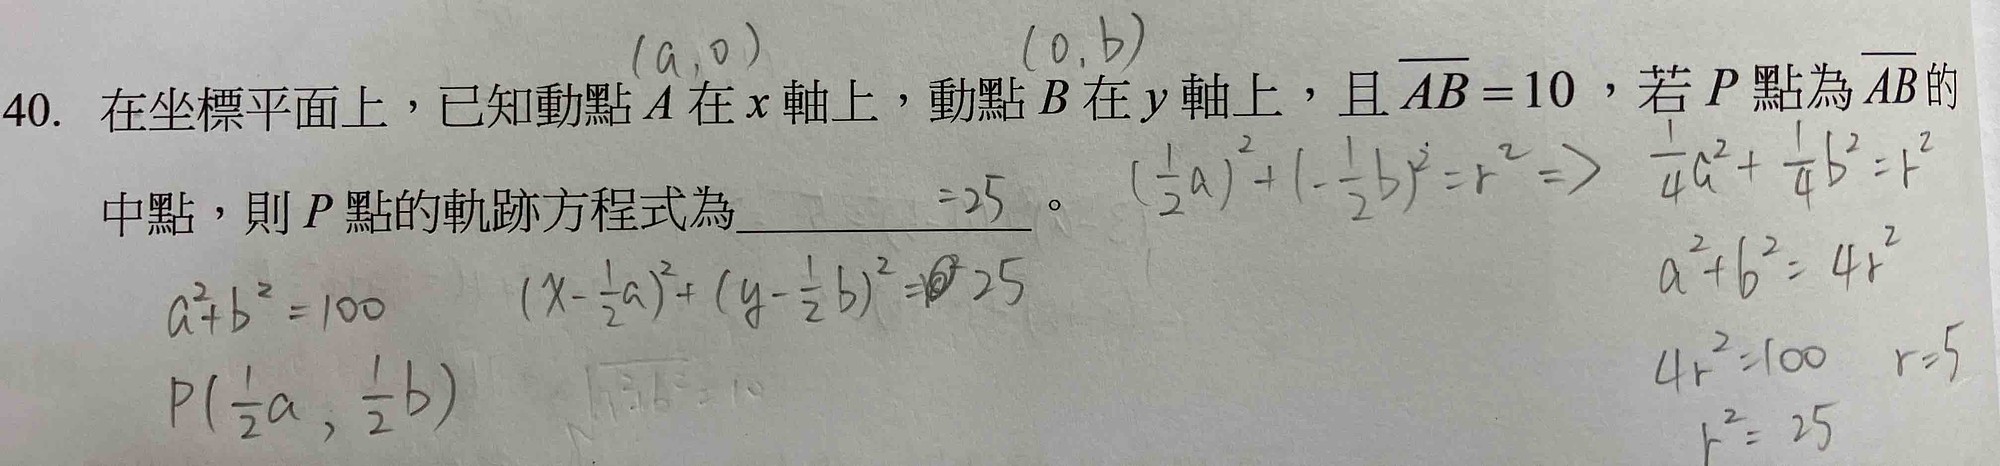 (a,0) (0,b)
40. 在坐標平面上，已知動點 A 在 x 軸上，動點 B 在 y 軸上，且 \overline{AB} = 10，若 P 點為 \overline{AB} 的
中點，則 P 點的軌跡方程式為__________ =25 。
(\frac{1}{2}a)^2+(-\frac{1}{2}b)^2=r^2 => \frac{1}{4}a^2+\frac{1}{4}b^2=r^2
a^2+b^2=4r^2
a^2+b^2=100 (x-\frac{1}{2}a)^2+(y-\frac{1}{2}b)^2=25
4r^2=100 r=5
P(\frac{1}{2}a, \frac{1}{2}b)
r^2=25